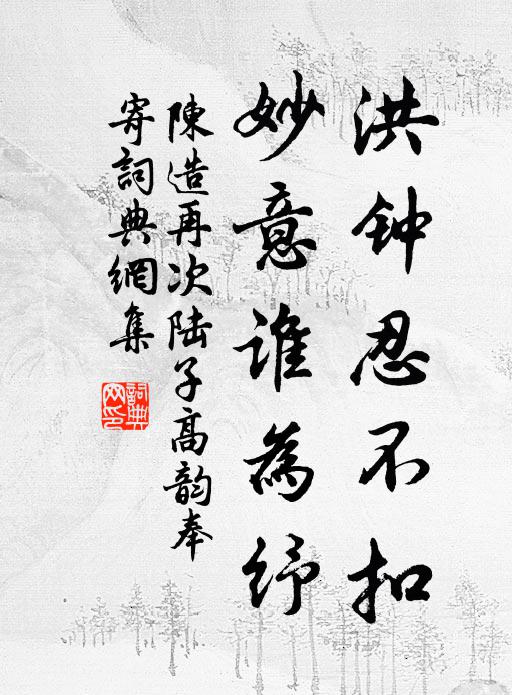 洪钟忍不扣
妙意谁為纾
陳造再次陆子高韵奉
寄詞典網集
詞典網印